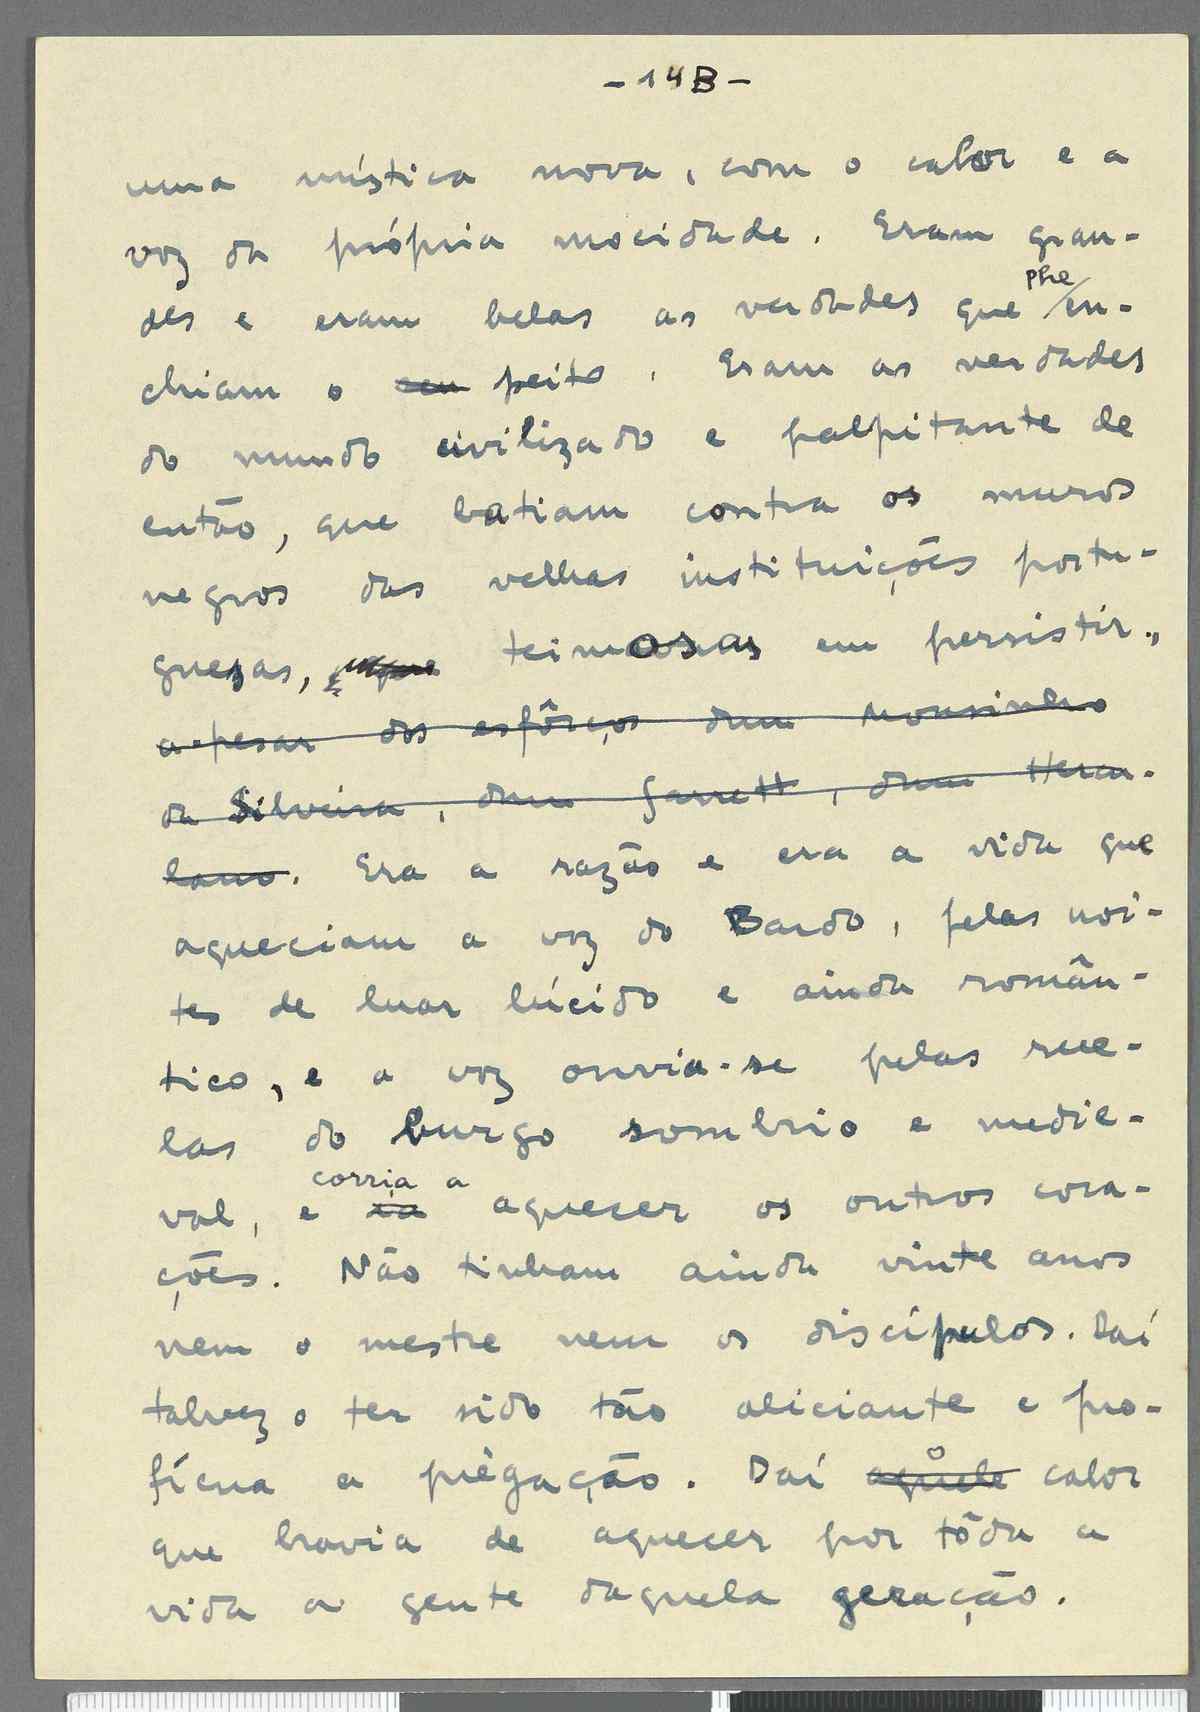 -14B-
uma mística nova, com o calor e a
voz da própria mocidade. Eram gran-
des e eram belas as verdades que lhe en-
chiam o seu peito. Eram as verdades
do mundo civilizado e palpitante de
então, que batiam contra os muros
negros das velhas instituições portu-
guesas, que teimosas em persistir.,
a-pesar dos esfôrços dum Mousinho
da Silveira, dum Garrett, dum Hercu-
lano. Era a razão e era a vida que
aqueciam a voz do Bardo, pelas noi-
tes de luar lúcido e ainda român-
tico, e a voz ouvia-se pelas rue-
las do burgo sombrio e medie-
val, e ia corria a aquecer os outros cora-
ções. Não tinham ainda vinte anos
nem o mestre nem os discípulos. Daí
talvez o ter sido tão aliciante e pro-
fícua a prègação. Daí aquele o calor
que havia de aquecer por tôda a
vida a gente daquela geração.